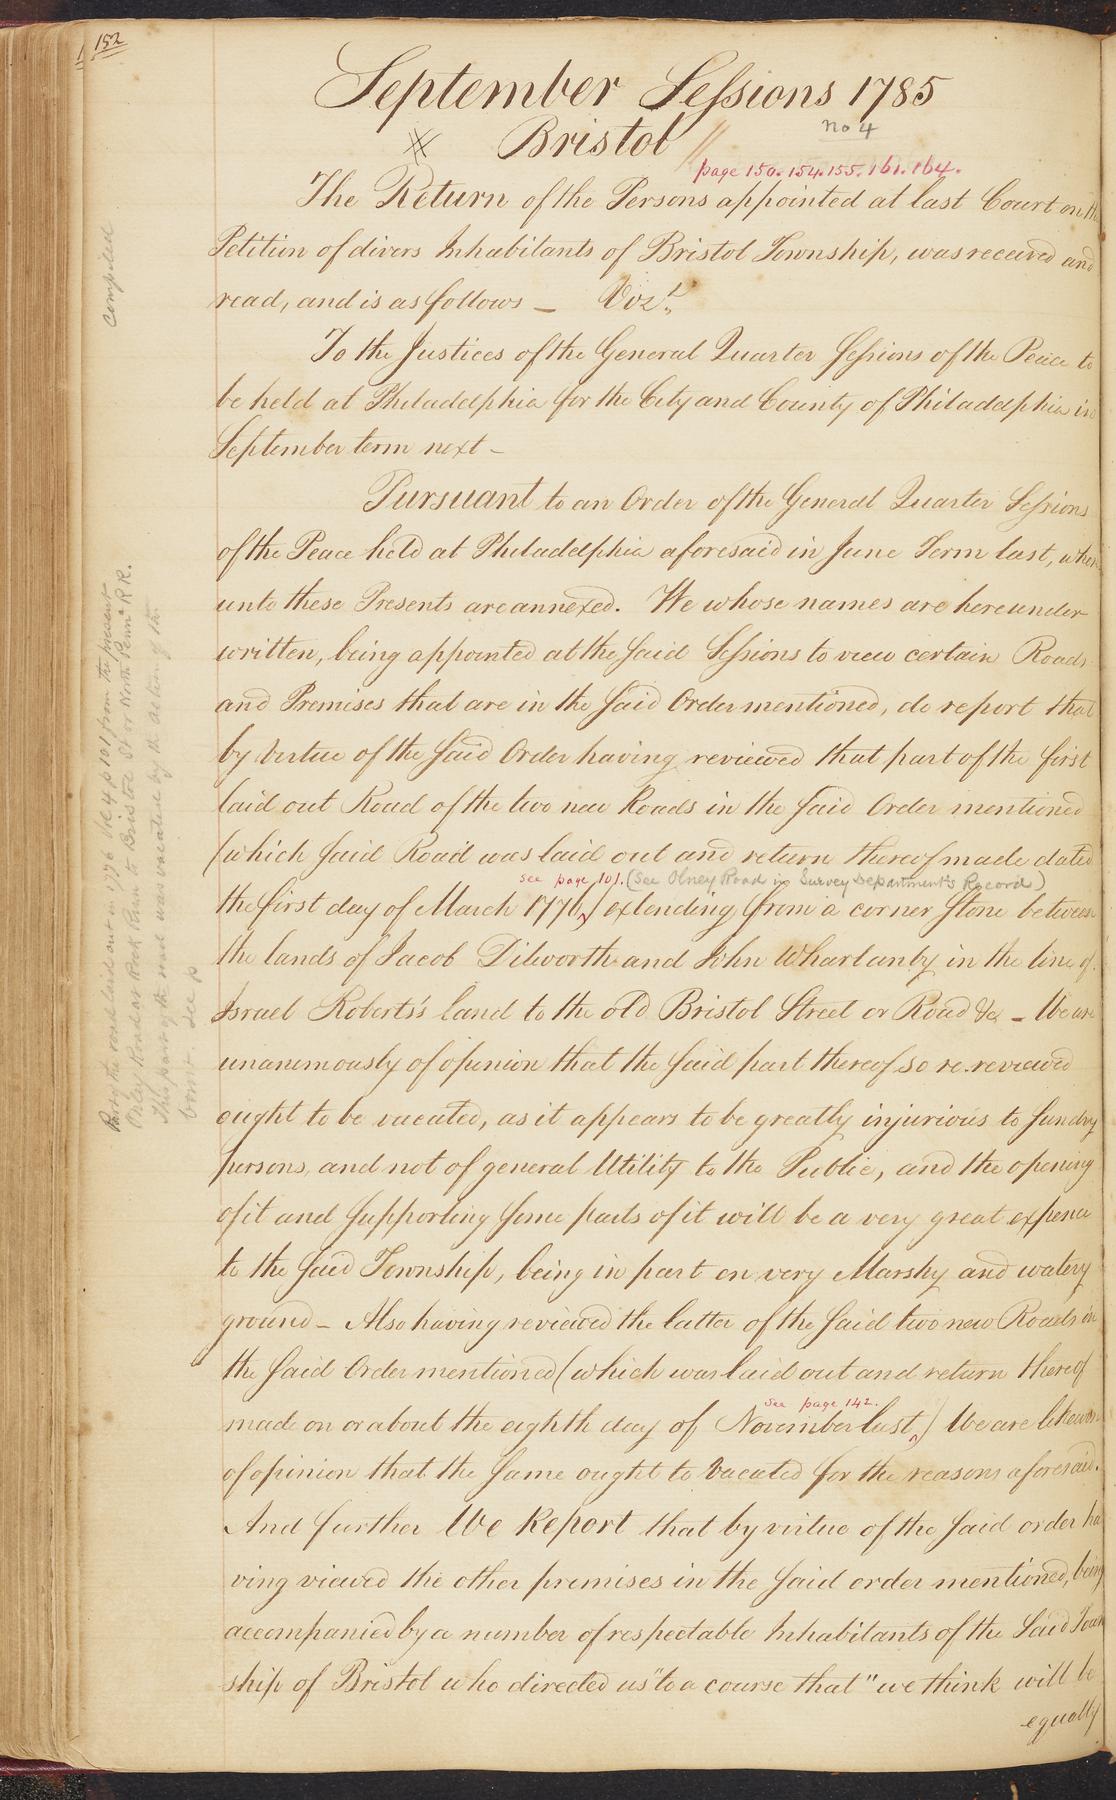 152
September Sessions 1785
Bristol
no 4
page 150. 154. 155. 161. 164.
The Return of the Persons appointed at last Court on the
Petition of divers Inhabitants of Bristol Township, was received and
read, and is as follows – Vizt.
To the Justices of the General Quarter Sessions of the Peace to
be held at Philadelphia for the City and County of Philadelphia in
September term next –
Pursuant to an Order of the General Quarter Sessions
of the Peace held at Philadelphia aforesaid in June Term last, where
unto these Presents are annexed. We whose names are hereunder
written, being appointed at the said Sessions to view certain Roads
and Premises that are in the said Order mentioned, do report that
by Virtue of the said Order having reviewed that part of the first
laid out Road of the two new Roads in the said Order mentioned
(which said Road was laid out and return thereof made dated
see page 101. (See Olney Road in Survey Department's Record)
the first day of March 1776,) extending from a corner Stone between
the lands of Jacob Dilworth and John Whartanby in the line of
Israel Roberts's land to the old Bristol Street or Road &c – We are
unanimously of opinion that the said part thereof so re.reviewed
ought to be vacated, as it appears to be greatly injurious to sundry
persons, and not of general Utility to the Public, and the opening
of it and supporting some parts of it will be a very great expence
to the said Township, being in part on very Marshy and watery
ground – Also having reviewed the latter of the said two new Roads in
the said Order mentioned (which was laid out and return thereof
see page 142.
made on or about the eighth day of November last,) We are likewise
of opinion that the same ought to Vacated for the reasons aforesaid.
And further We Report that by virtue of the said order ha
ving viewed the other premises in the said order mentioned, being
accompanied by a number of respectable Inhabitants of the said Town
ship of Bristol who directed us "to a course that" we think will be
equally
compiled
Part of the road laid out in 1776 Vol 4 p 101 from the present
Olney Road at Rock Run to Bristol St or North Penna R.R.
This part of the road was vacated by the action of the
Court. See p